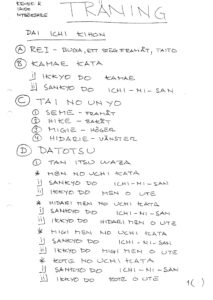 KENDO &
IAIDO
TRÄNING
DAI ICHI KIHON
Ⓐ REI - BUGA, ETT STEG FRAMÅT, TAITO
Ⓑ KAMAE KATA
i] IKKYO DO KAMAE
ii] SANKYO DO ICHI-NI-SAN
Ⓒ TAI NO UN YO
① SEME - FRAMÅT
② HIKE - BAKÅT
③ MIGIE - HÖGER
④ HIDARIE - VÄNSTER
Ⓓ DATOTSU
① TAN ITSU WAZA
* MEN NO UCHI KATA
i] SANKYO DO ICHI-NI-SAN
ii] IKKYO DO MEN O UTE
* HIDARI MEN NO UCHI KATA
i] SANKYO DO ICHI-NI-SAN
ii] IKKYO DO HIDARI MEN O UTE
* MIGI MEN NO UCHI KATA
i] SANKYO DO ICHI-NI-SAN
ii] IKKYO DO MIGI MEN O UTE
* KOTE NO UCHI KATA
i] SANKYO DO ICHI-NI-SAN
ii] IKKYO DO KOTE O UTE
1( )